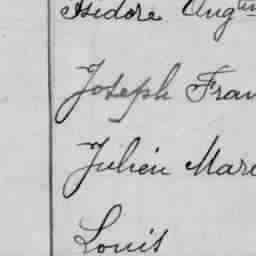 Isidore Aug
Joseph Fran
Julien Mare
Louis